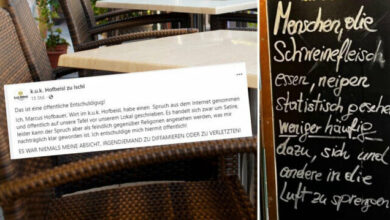 k.u.k. Hofbeisl zu Ischl
15 Std.
Das ist eine öffentliche Entschuldigung!
Ich, Marcus Hofbauer, Wirt im k.u.k. Hofbeisl, habe einen Spruch aus dem Internet genommen
und öffentlich auf unsere Tafel vor unserem Lokal geschrieben. Es handelt sich zwar um Satire,
leider kann der Spruch aber als feindlich gegenüber Religionen angesehen werden, was mir
nachträglich klar geworden ist. Ich entschuldige mich hiermit öffentlich!
ES WAR NIEMALS MEINE ABSICHT, IRGENDJEMAND ZU DIFFAMIEREN ODER ZU VERLETZTEN!
Menschen, die
Schweinefleisch
essen, neigen
statistisch gesehen
weniger häufig
dazu, sich und
andere in die
Luft zu sprengen